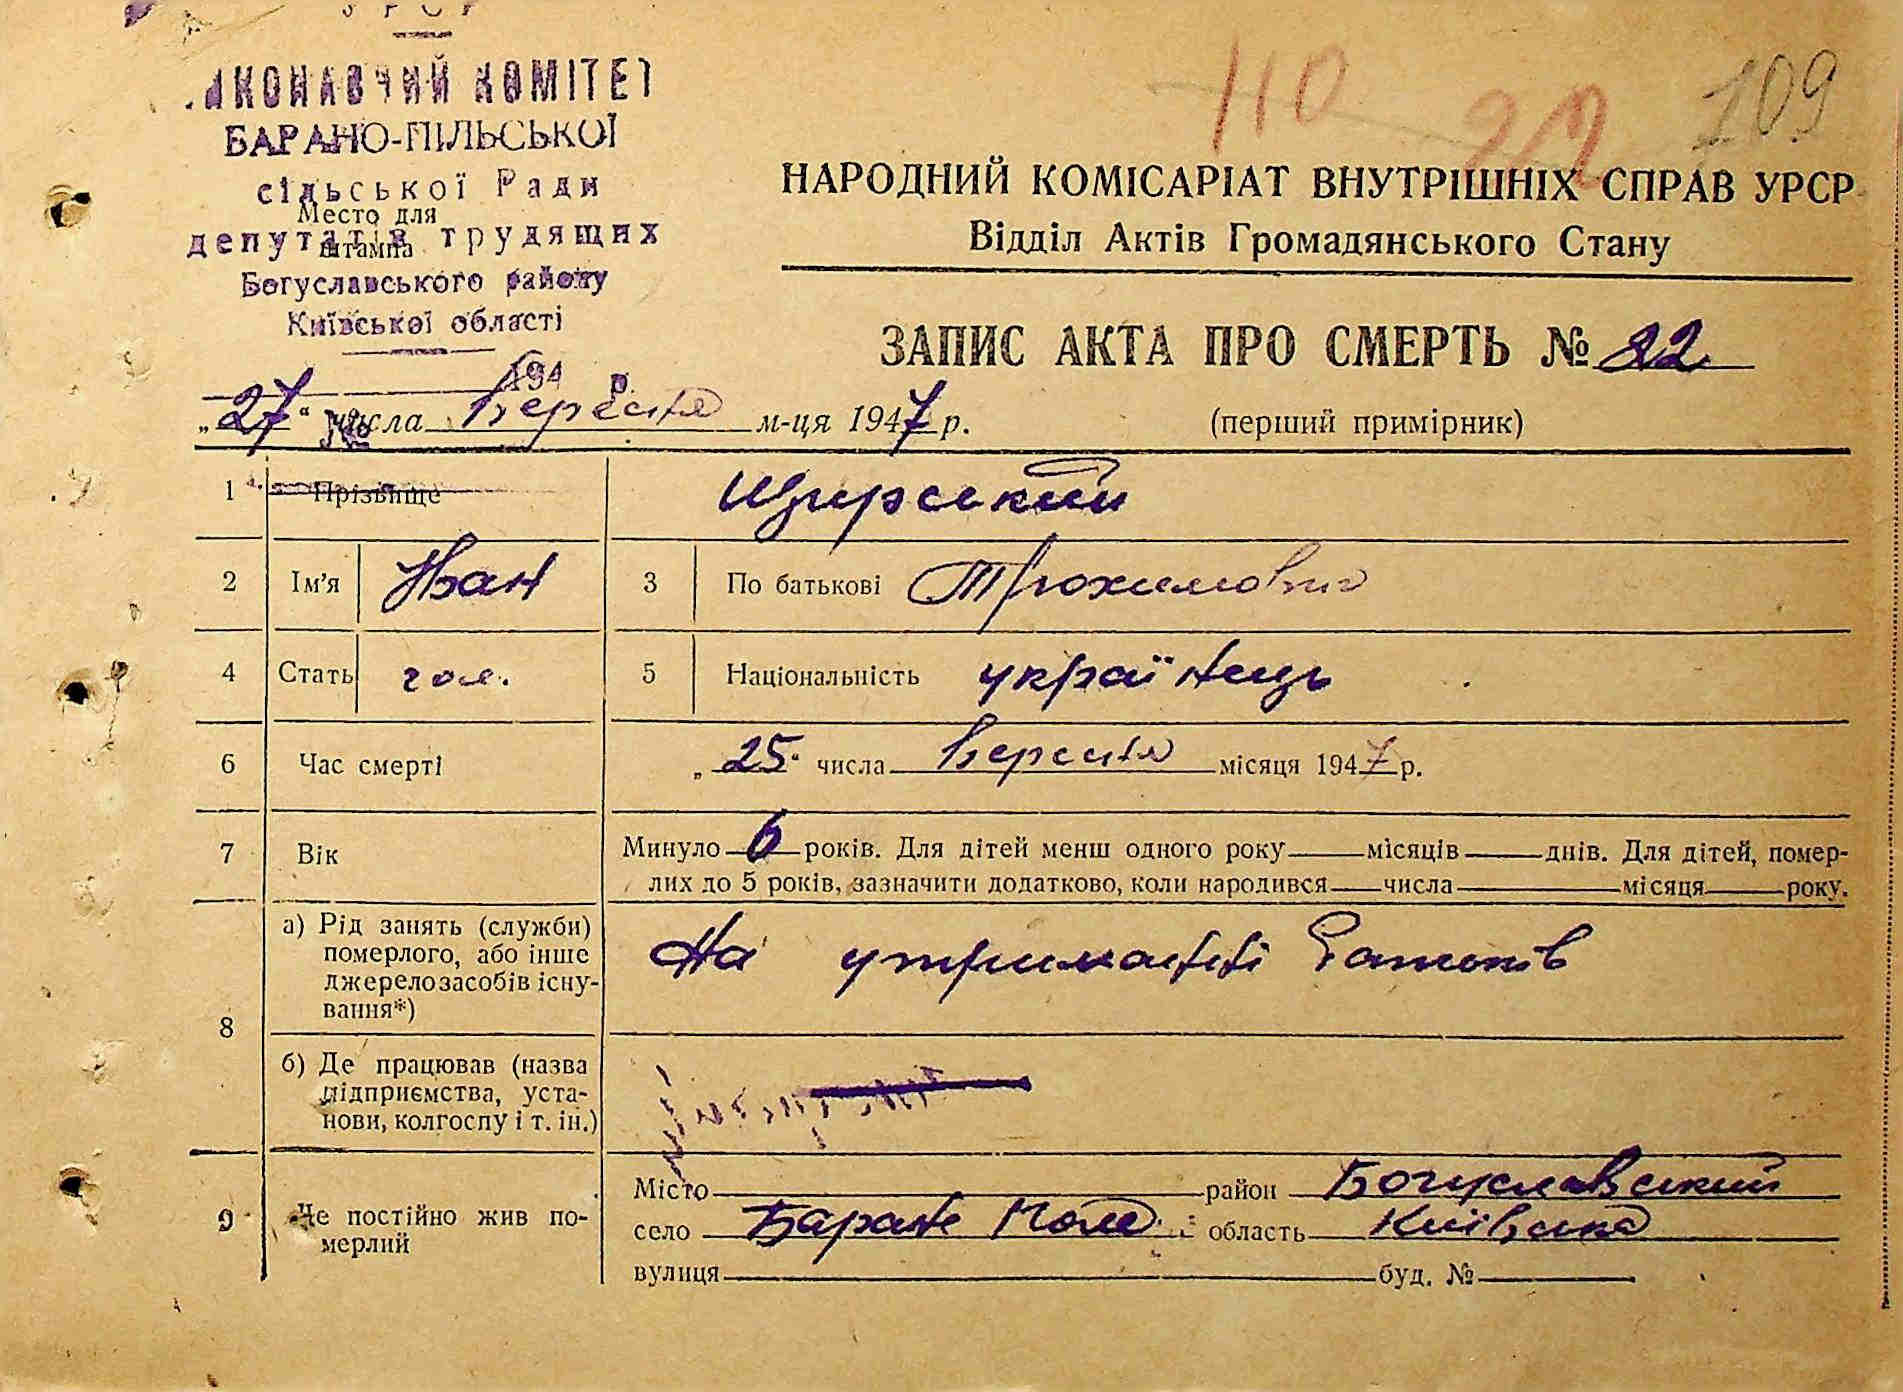 УРСР
ВИКОНАВЧИЙ КОМІТЕТ
БАРАНО-ПІЛЬСЬКОЇ
сільської Ради
Место для
депутатів трудящих
штампа
Богуславського району
Київської області
194 р.
№
110
109
НАРОДНИЙ КОМІСАРІАТ ВНУТРІШНІХ СПРАВ УРСР
Відділ Актів Громадянського Стану
ЗАПИС АКТА ПРО СМЕРТЬ № 22
„27“ числа Вересня м-ця 1947 р.
(перший примірник)
1 Прізвище Щирський
2 Ім'я Іван 3 По батькові Трохимович
4 Стать чол. 5 Національність українець
6 Час смерті „25“ числа Вересня місяця 1947 р.
7 Вік Минуло 6 років. Для дітей менш одного року місяців днів. Для дітей, помер-
лих до 5 років, зазначити додатково, коли народився числа місяця року.
8 а) Рід занять (служби)
померлого, або інше
джерело засобів існу-
вання*)
На утриманні батьків
б) Де працював (назва
підприємства, уста-
нови, колгоспу і т. ін.)
9 Де постійно жив по-
мерлий
Місто район Богуславський
село Баране Поле область Київська
вулиця буд. №